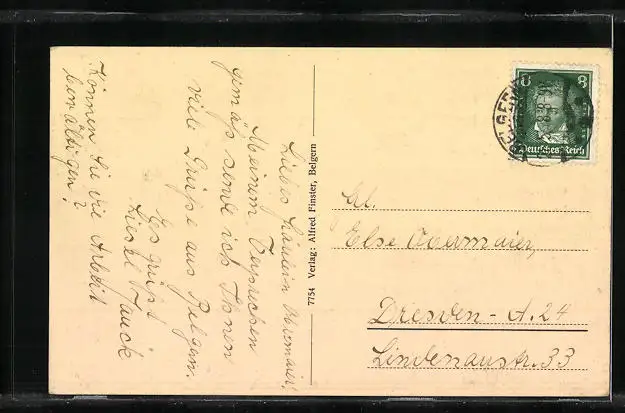 Liebes Fräulein Obermaier!
Meinem Versprechen
gemäß sende ich Ihnen
viele Grüße aus Belgern.
Können Sie die Arbeit
bewältigen?
Es grüßt
Liesel Jauck
7754 Verlag: Alfred Finster, Belgern
8 8
Deutsches Reich
BELGERN
Frl.
Else Obermaier,
Dresden - A. 24
Lindenaustr. 33